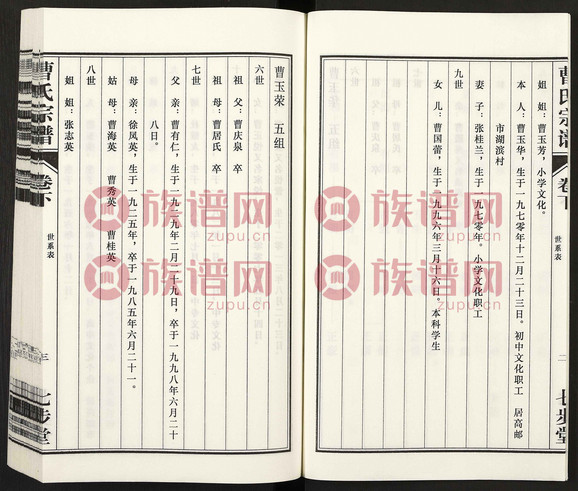 曹氏宗谱
卷下
世系表
二
七步堂
姐　姐：曹玉芳，小学文化。
本　人：曹玉华，生于一九七零年十二月二十三日。初中文化职工　居高邮
市湖滨村
九世
妻　子：张桂兰，生于一九七零年。小学文化职工
女　儿：曹国蕾，生于一九九六年三月十六日。本科学生
曹玉荣　五组
六世
祖　父：曹庆泉　卒
祖　母：曹居氏　卒
七世
父　亲：曹有仁，生于一九一九年二月二十九日，卒于一九九八年六月二十
八日。
母　亲：徐凤英，生于一九二五年，卒于一九八五年六月二十一。
姑　母：曹海英　曹秀英　曹桂英
八世
姐　姐：张志英
曹氏宗谱
卷下
世系表
三
七步堂
族谱网
zupu.cn
族谱网
zupu.cn
族谱网
zupu.cn
族谱网
zupu.cn